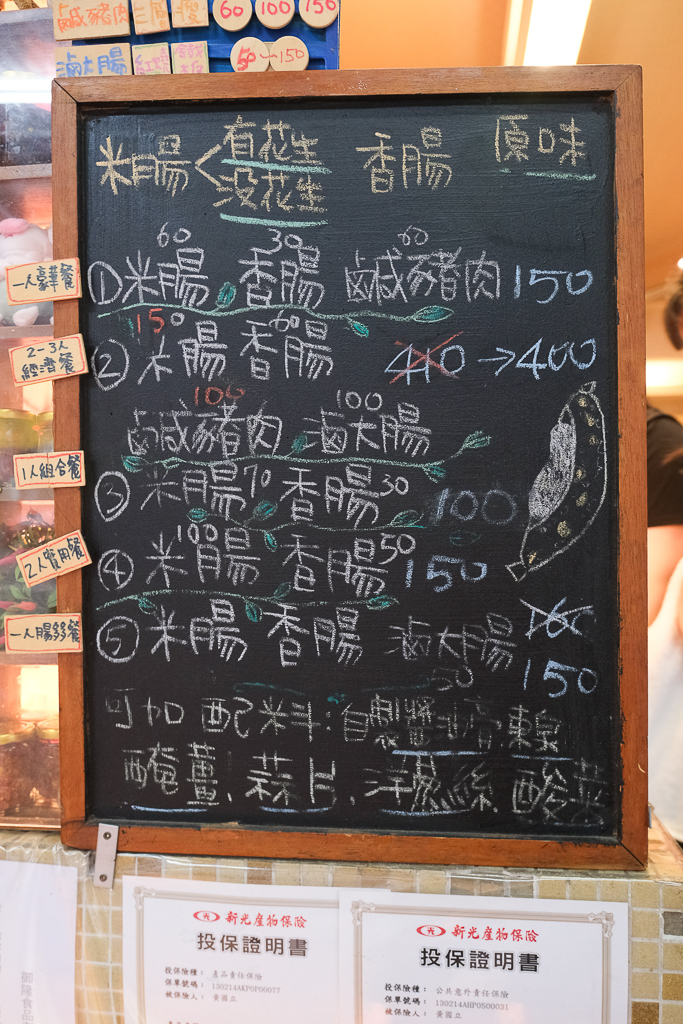 鹹豬肉 三層 60 100 150
滷大腸 50~150
米腸<有花生 香腸 原味
沒花生
60 30 60
一人豪華餐
①米腸 香腸 鹹豬肉 150
150 60
2-3人
經濟餐
②米腸 香腸 410→400
100 100
鹹豬肉 滷大腸
1人組合餐
③米腸70 香腸30 100
100 50
2人雙用餐
④米腸 香腸 150
一人腸多餐
⑤米腸 香腸 滷大腸 160
50 150
可加配料:自製醬油膏.辣
醃薑.蒜片.洋蔥絲.酸菜
新光產物保險
投保證明書
投保險種: 產品責任保險
保單號碼: 130214AKP0P00077
被保險人: 黃國立
新光產物保險
投保證明書
投保險種: 公共意外責任保險
保單號碼: 130214AHP0S00031
被保險人: 黃國立